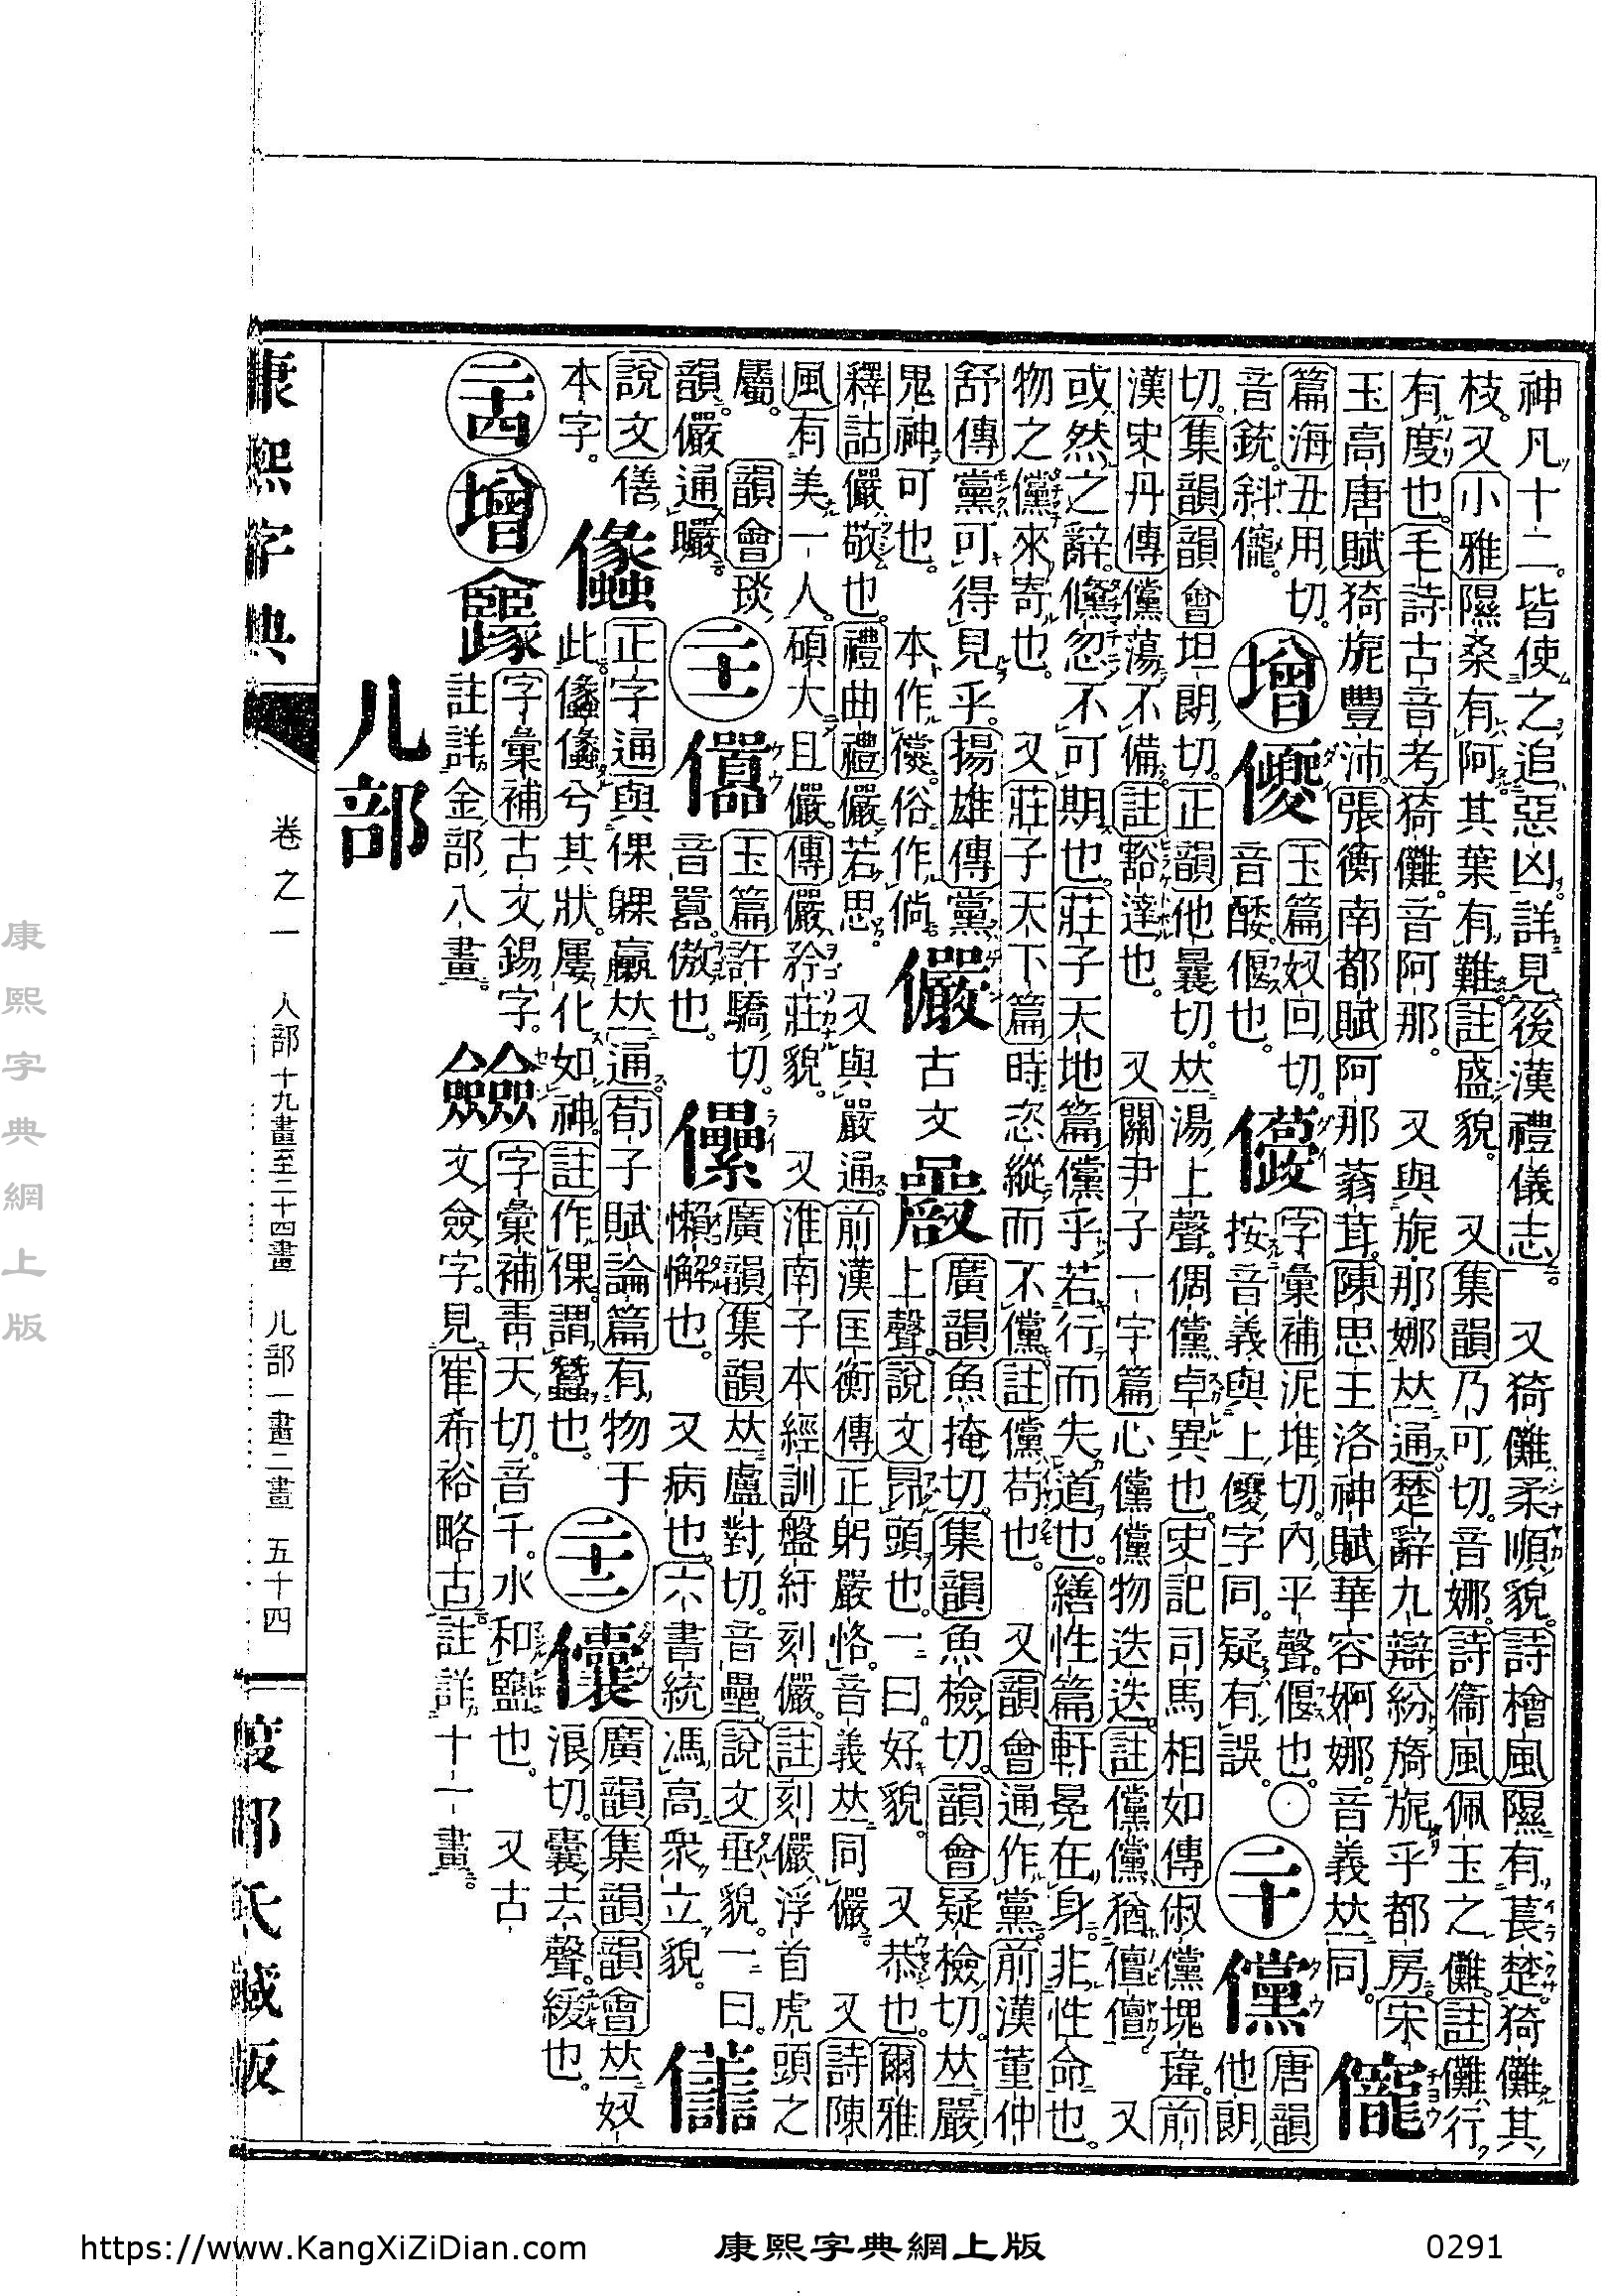 神凡十二。皆使之追惡凶。詳見後漢禮儀志。 又猗儺柔順貌。詩檜風隰有萇楚。猗儺其
枝。又小雅隰桑有阿。其葉有難。註盛貌。 又集韻乃可切。音娜。詩衞風佩玉之儺。註儺行
有度也。毛詩古音考猗儺。音阿那。 又與旎那娜𠀤通。楚辭九辯紛旖旎乎都房。宋
玉高唐賦猗旎豐沛。張衡南都賦阿那蓊茸。陳思王洛神賦華容婀娜。音義𠀤同。
篇海丑用切。音銃。斜 增 玉篇奴回切。音 偃也。 字彙補泥堆切。內平聲。偃也。○按音義與上 字同。疑有誤。 二十 儻 唐韻他朗
切。集韻韻會坦朗切。正韻他曩切。𠀤湯上聲。倜儻卓異也。史記司馬相如傳俶儻瑰瑋。前
漢史丹傳儻蕩不備。註豁達也。 又關尹子一宇篇心儻儻物迭迭。註儻儻猶儃儃。 又
或然之辭。儵忽不可期也。莊子天地篇儻乎若行而失道也。繕性篇軒冕在身。非性命也。
物之儻來寄也。 又莊子天下篇時恣縱而不儻。註儻苟也。 又韻會通作黨。前漢董仲
舒傳黨可得見乎。揚雄傳黨鬼神可也。 本作 俗作倘。 儼 古文 廣韻魚掩切。集韻魚檢切。韻會疑檢切。𠀤嚴上聲。說文昂頭也。一曰好貌。 又恭也。爾雅
釋詁儼敬也。禮曲禮儼若思。 又與嚴通。前漢匡衡傳正躬嚴恪。音義𠀤同儼。 又詩陳
風有美一人。碩大且儼。傳儼矜莊貌。 又淮南子本經訓盤紆刻儼。註刻儼浮首虎頭之
屬。 韻會琰韻。儼通曮。 二十一 玉篇許驕切。音囂。傲也。 儽 廣韻集韻𠀤盧對切。音壘。說文垂貌。一曰懶懈也。 又病也。六書統馮高衆立貌。
說文僐本字。 正字通與倮躶臝𠀤通。荀子賦論篇有物于此。 兮其狀。屢化如神。註作倮。謂蠶也。 二十二 儾 廣韻集韻韻會𠀤奴浪切。囊去聲。緩也。
二十四 增 字彙補古文錫字。註詳金部八畫。 字彙補靑天切。音千。水和鹽也。 又古文僉字。見崔希裕略古。註詳十一畫。
儿部
康熙字典 卷之一 人部十九畫至二十四畫 儿部一畫二畫 五十四 渡部氏藏版
康熙字典網上版
https://www.KangXiZiDian.com 康熙字典網上版 0291